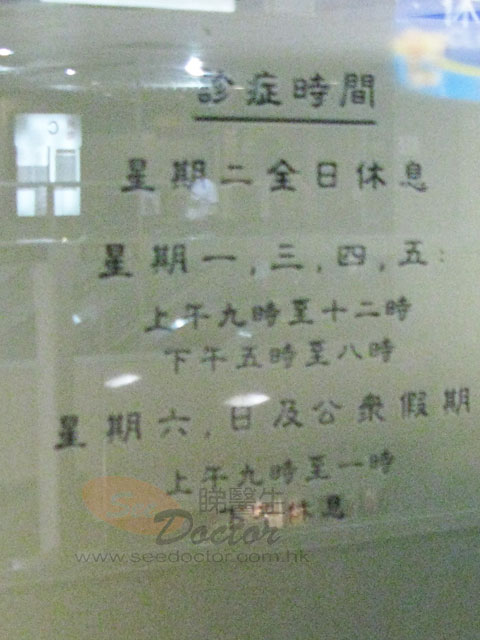 診症時間
星期二全日休息
星期一,三,四,五:
上午九時至十二時
下午五時至八時
星期六,日及公眾假期
上午九時至一時
休息
睇醫生
See Doctor
www.seedoctor.com.hk